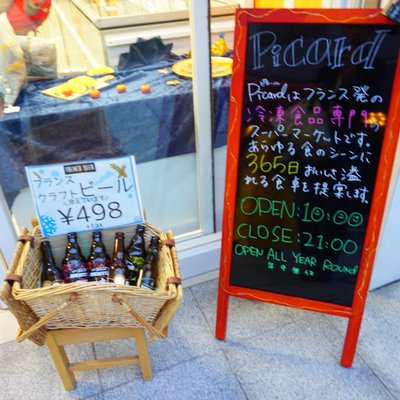 FRENCH BEER
フランス
クラフトビール
冷えています!
¥498
+tax
Picard
Picardはフランス発の
冷凍食品専門の
スーパーマーケットです。
あらゆる食のシーンに
365日おいしさ溢
れる食卓を提案します。
OPEN:10:00
CLOSE:21:00
OPEN ALL YEAR ROUND
年中無休